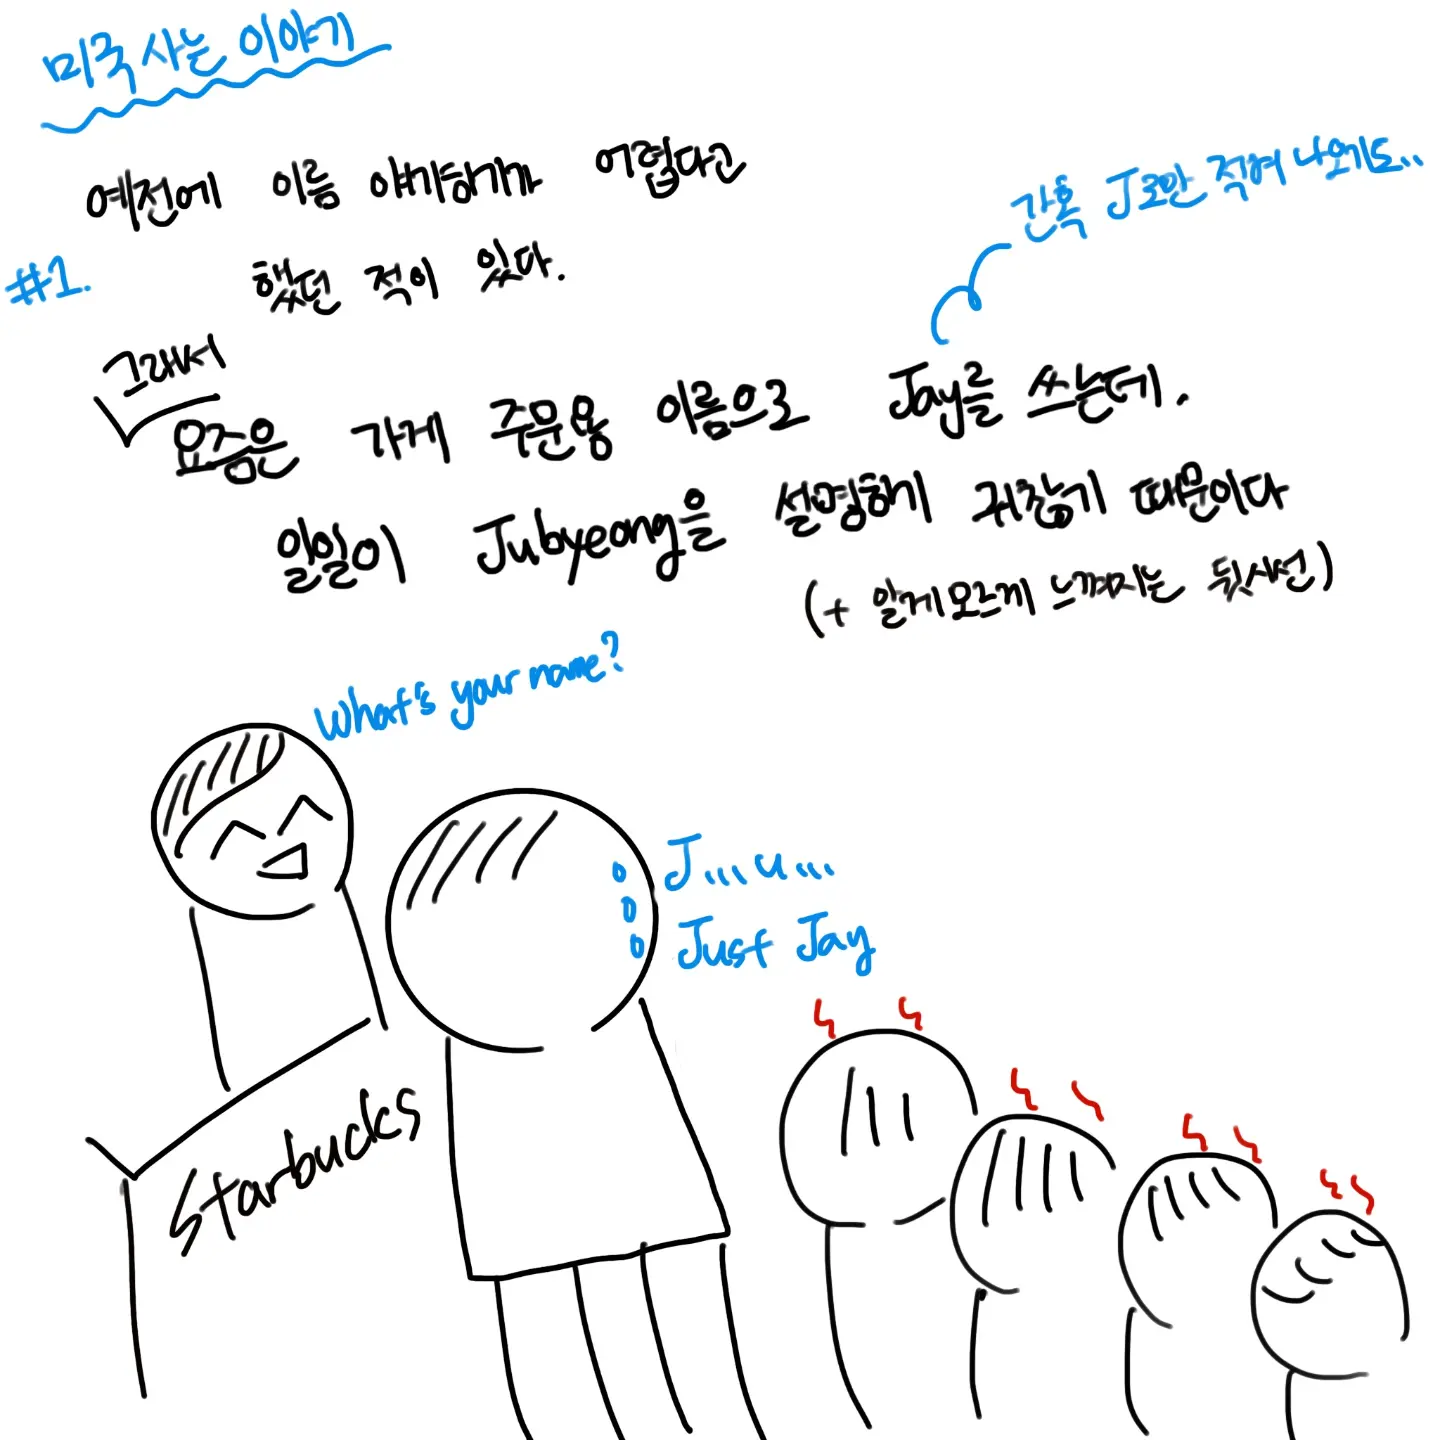 미국 사는 이야기
예전에 이름 얘기하기가 어렵다고
#1.
했던 적이 있다.
간혹 J로만 적혀 나오기도..
그래서
요즘은 가게 주문용 이름으로 Jay를 쓰는데.
일일이 Jubyeong을 설명하기 귀찮기 때문이다
(+ 알게모르게 느껴지는 뒷시선)
What's your name?
J...u...
Just Jay
Starbucks